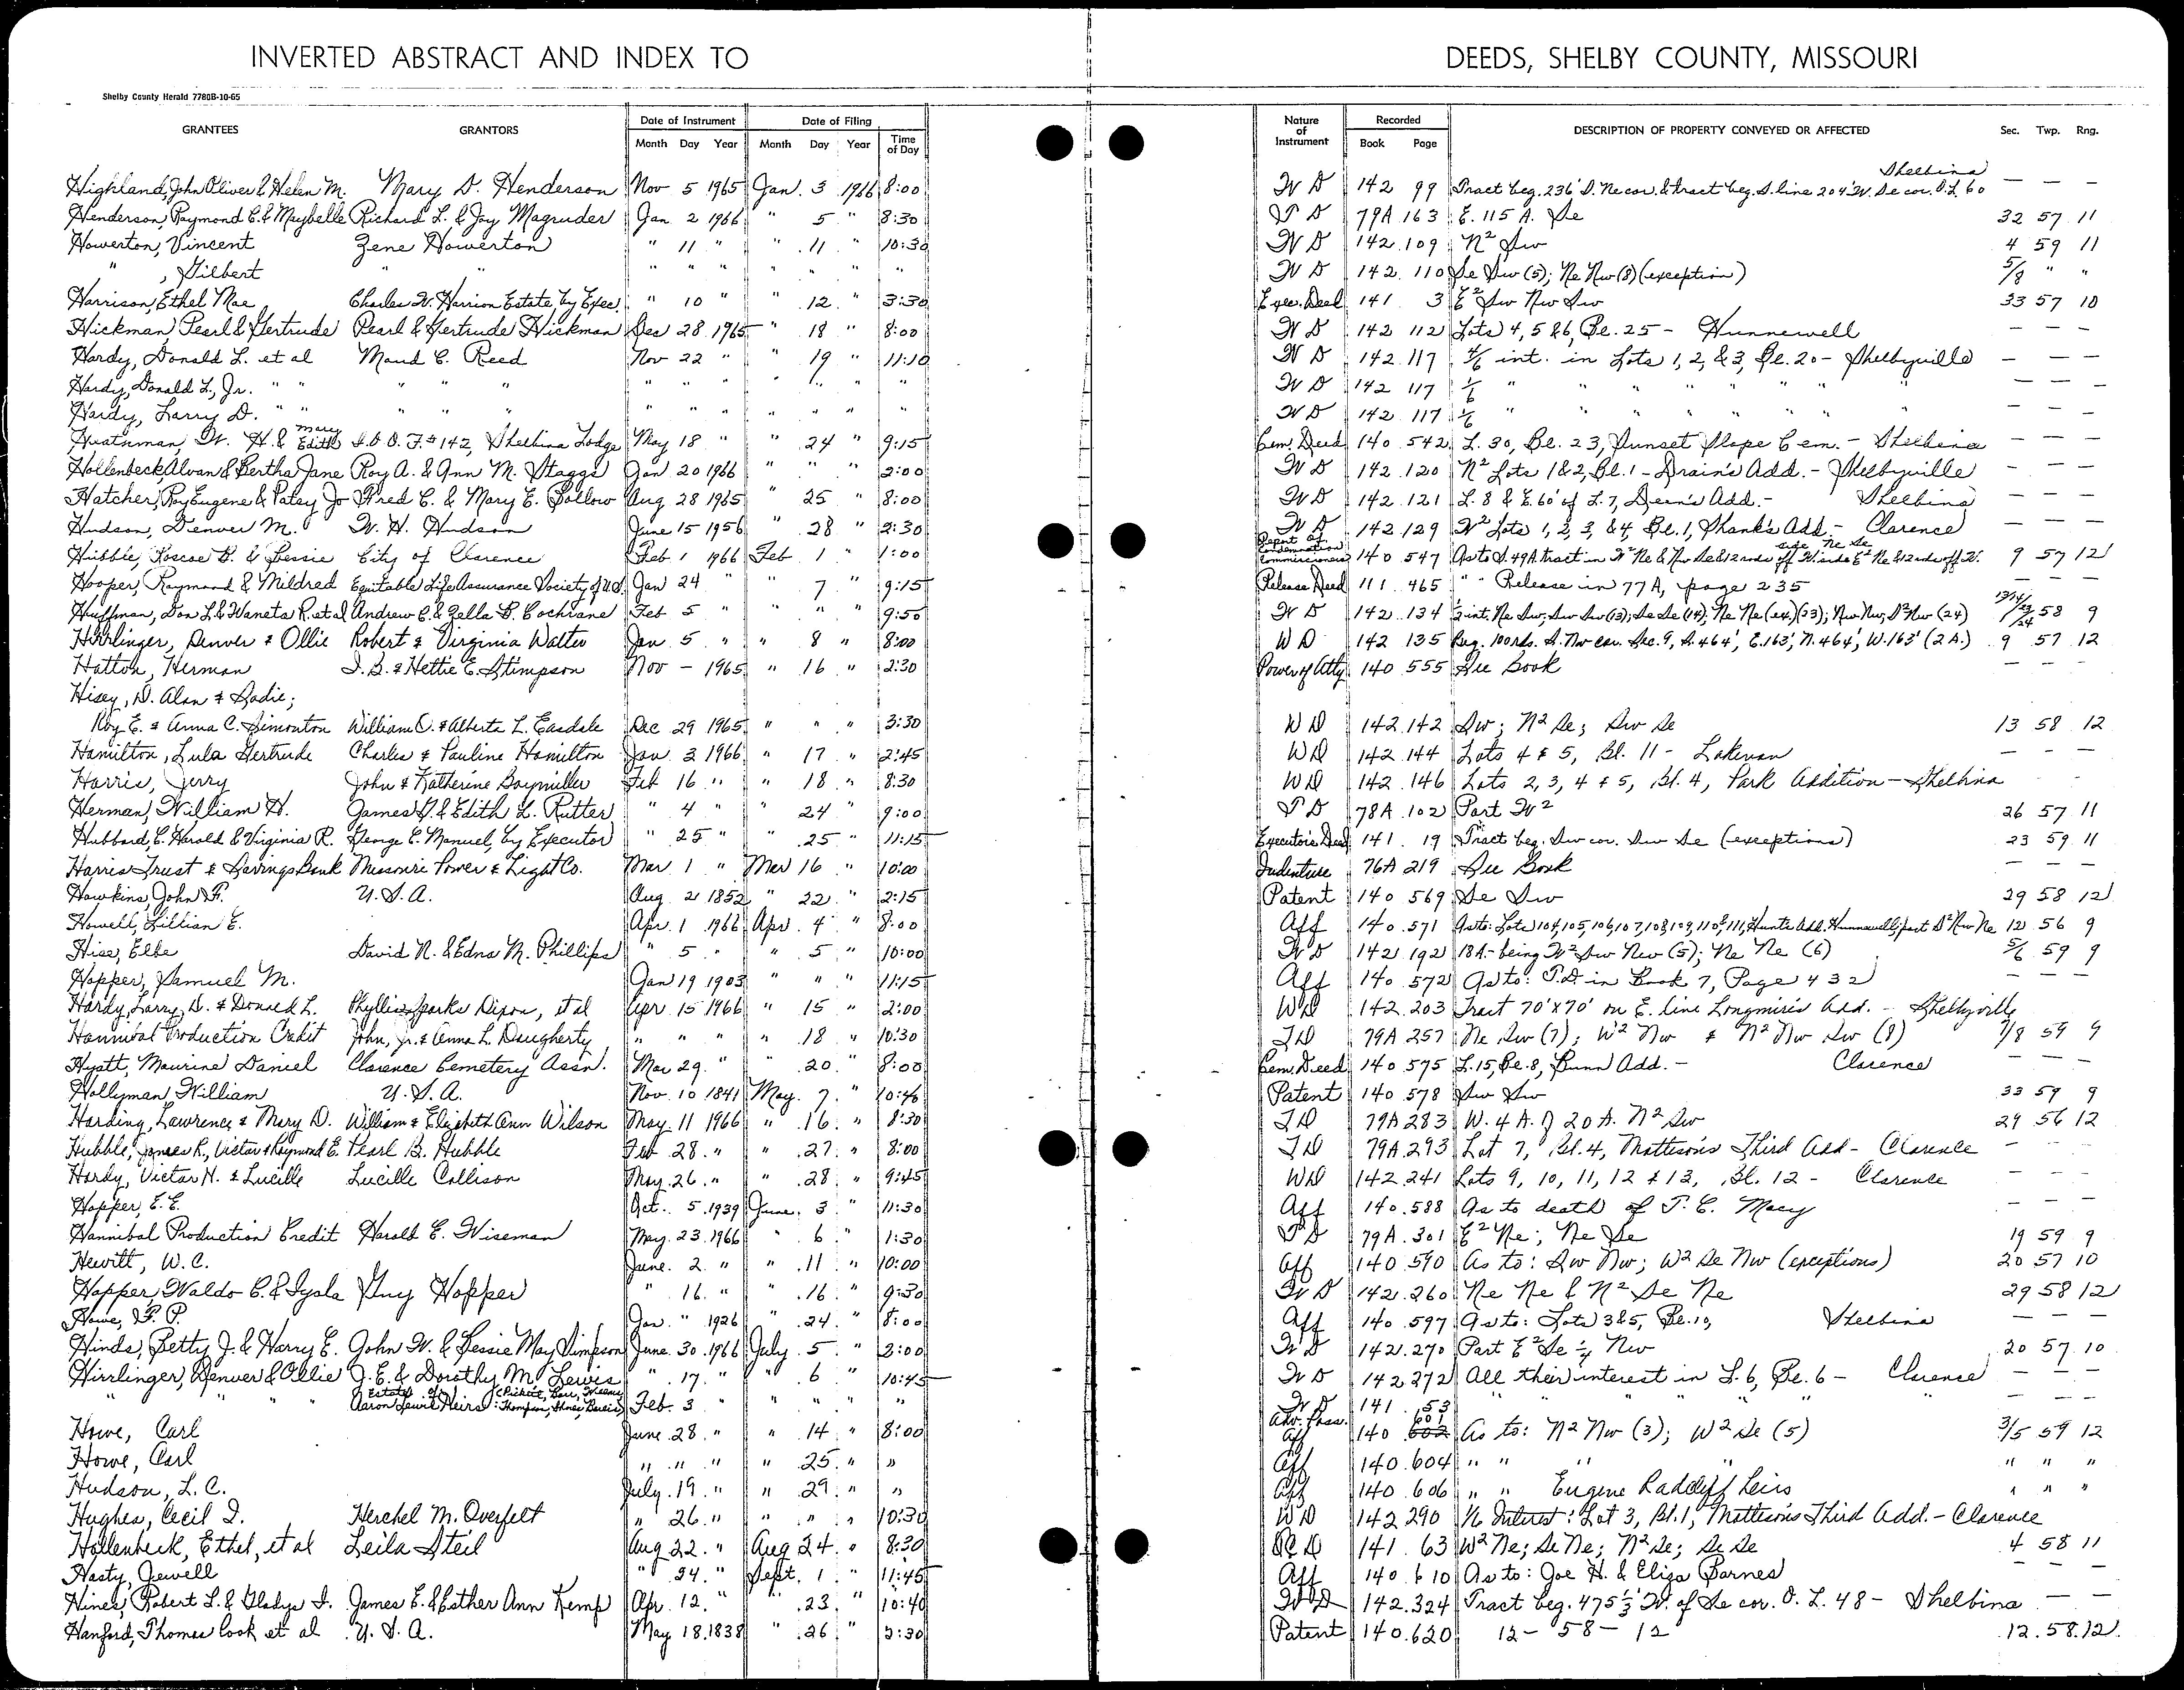 INVERTED ABSTRACT AND INDEX TO DEEDS, SHELBY COUNTY, MISSOURI
Shelby County Herald 7780B-10-65
GRANTEES GRANTORS Date of Instrument Month Day Year Date of Filing Month Day Year Time of Day Nature of Instrument Recorded Book Page DESCRIPTION OF PROPERTY CONVEYED OR AFFECTED Sec. Twp. Rng.
Highland, John Oliver & Helen M. Mary D. Henderson Nov 5 1965 Jan. 3 1966 8:00 W D 142 99 Tract beg. 236' S. Ne cor. & tract beg. S. line 204' W. Se cor. O.L. 60 Shelbina — — —
Henderson, Raymond C. & Maybelle Richard L. & Joy Magruder Jan 2 1966 " 5 " 8:30 T D 79A 163 E. 115 A. Se 32 57 11
Howerton, Vincent Gene Howerton " 11 " " 11 " 10:30 W D 142 109 N² Sw 4 59 11
" , Gilbert " " " " " " " " " W D 142 110 Se Sw (5); Ne Nw (8) (exception) 5/8 " "
Harrison, Ethel Mae Charles W. Harrion Estate, by Exec. " 10 " " 12 " 3:30 Exec. Deed 141 3 E² Sw Nw Sw 33 57 10
Hickman, Pearl & Gertrude Pearl & Gertrude Hickman Dec 28 1965 " 18 " 8:00 W D 142 112 Lots 4, 5 & 6, Bl. 25 - Hunnewell — — —
Hardy, Donald L. et al Maud C. Reed Nov 22 " " 19 " 11:10 W D 142 117 4/6 int. in Lots 1, 2, & 3, Bl. 20 - Shelbyville — — —
Hardy, Donald L., Jr. " " " " " " " " " " " " W D 142 117 1/6 " " " " " " " — — —
Hardy, Larry D. " " " " " " " " " " " " W D 142 117 1/6 " " " " " " " — — —
Heathman, W. H. & Mary Edith I.O.O.F. #142, Shelbina Lodge May 18 " " 24 " 9:15 Cem. Deed 140 542 L. 30, Bl. 23, Sunset Slope Cem. - Shelbina — — —
Hollenbeck, Alvan & Bertha Jane Roy A. & Ann M. Staggs Jan 20 1966 " " " 2:00 W D 142 120 N² Lots 1 & 2, Bl. 1 - Drain's Add. - Shelbyville — — —
Hatcher, Roy Eugene & Patsy Jo Fred C. & Mary E. Ballow Aug 28 1965 " 25 " 8:00 W D 142 121 L. 8 & E. 60' of L. 7, Dean's Add. - Shelbina — — —
Hudson, Denver M. W. H. Hudson June 15 1956 " 28 " 2:30 W D 142 129 W² Lots 1, 2, 3, & 4, Bl. 1, Shank's Add. - Clarence — — —
Hubble, Roscoe B. & Bessie City of Clarence Feb 1 1966 Feb 1 " 1:00 Report of Condemnation Commissioners 140 547 As to S. 49A. tract in W² Ne & Nw Se & 12 rods off W. side E² Ne & 12 rods off W. side Ne Se 9 57 12
Hooper, Raymond & Mildred Equitable Life Assurance Society of U.S. Jan 24 " " 7 " 9:15 Release Deed 111 465 " " Release in 77A, page 235 — — —
Huffman, Don L. & Waneta R. et al Andrew C. & Zella B. Cochrane Feb 5 " " " " 9:50 W D 142 134 int. Ne Sw; Sw Sw (13); Se Se (14); Ne Ne (ex.) (23); Nw Nw; S² Nw (24) 13/14/23/24 58 9
Hirrlinger, Denver & Ollie Robert & Virginia Walter Jan 5 " " 8 " 8:00 W D 142 135 Beg. 100 rds. S. Nw cor. Sec. 9, S. 464', E. 163', N. 464', W. 163' (2 A.) 9 57 12
Hatton, Herman I. B. & Hettie E. Stimpson Nov — 1965 " 16 " 2:30 Power of Atty. 140 555 See Book — — —
Hisey, D. Alan & Sadie;
Roy E. & Anna C. Simonton William O. & Alberta L. Easdale Dec 29 1965 " " " 3:30 W D 142 142 Sw; N² Se; Sw Se 13 58 12
Hamilton, Lula Gertrude Charles & Pauline Hamilton Jan. 3 1966 " 17 " 2:45 W D 142 144 Lots 4 & 5, Bl. 11 - Lakenan — — —
Harris, Jerry John & Katherine Baymiller Feb 16 " " 18 " 8:30 W D 142 146 Lots 2, 3, 4 & 5, Bl. 4, Park Addition - Shelbina
Herman, William H. James D. & Edith L. Rutter " 4 " " 24 " 9:00 T D 78A 102 Part W² 26 57 11
Hubbard, C. Harold & Virginia R. George C. Manuel, by Executor " 25 " " 25 " 11:15 Executor's Deed 141 19 Tract beg. Sw cor. Sw Se (exceptions) 23 59 11
Harris Trust & Savings Bank Missouri Power & Light Co. Mar 1 " Mar 16 " 10:00 Indenture 76A 219 See Book — — —
Hawkins, John F. U. S. A. Aug 2 1852 " 22 " 2:15 Patent 140 569 Se Sw 29 58 12
Howell, Lillian E. Apr. 1 1966 Apr. 4 " 8:00 Aff 140 571 As to: Lots 104, 105, 106, 107, 108, 109, 110 & 111, Hunt's Add. Hunnewell; part S² Nw Ne 12 56 9
Hise, Elbe David N. & Edna M. Phillips " 5 " " 5 " 10:00 W D 142 192 18A. being W² Sw Nw (5); Ne Ne (6) 5/6 59 9
Hopper, Samuel M. Jan 19 1903 " " " 11:15 Aff 140 572 As to: T.D. in Book 7, Page 432 — — —
Hardy, Larry D. & Donald L. Phyllis Sparks Dixon, et al Apr. 15 1966 " 15 " 2:00 W D 142 203 Tract 70' x 70' on E. line Longmire's Add. - Shelbyville
Hannibal Production Credit John, Jr. & Anna L. Daugherty " " " " 18 " 10:30 T D 79A 257 Ne Sw (7); W² Nw & N² Nw Sw (8) 7/8 59 9
Hyatt, Maurine Daniel Clarence Cemetery Assn. Mar 29 " " 20 " 8:00 Cem. Deed 140 575 L. 15, Bl. 8, Bunn Add. - Clarence — — —
Hollyman, William U. S. A. Nov. 10 1841 May 7 " 10:46 Patent 140 578 Sw Sw 33 59 9
Harding, Lawrence & Mary D. William & Elizabeth Ann Wilson May 11 1966 " 16 " 8:30 T D 79A 283 W. 4 A. of 20 A. N² Sw 29 56 12
Hubble, James R., Victor & Raymond E. Pearl B. Hubble Feb 28 " " 27 " 8:00 T D 79A 293 Lot 7, Bl. 4, Matteson's Third Add - Clarence — — —
Hardy, Victor H. & Lucille Lucille Collison May 26 " " 28 " 9:45 W D 142 241 Lots 9, 10, 11, 12 & 13, Bl. 12 - Clarence — — —
Hopper, E. E. Oct. 5 1939 June 3 " 11:30 Aff 140 588 As to death of T. C. Macy — — —
Hannibal Production Credit Harold E. Wiseman May 23 1966 " 6 " 1:30 T D 79A 301 E² Ne; Ne Se 19 59 9
Hewitt, W. C. June 2 " " 11 " 10:00 Aff 140 590 As to: Sw Nw; W² Se Nw (exceptions) 20 57 10
Hopper, Waldo C. & Iyala Guy Hopper " 16 " " 16 " 9:30 W D 142 260 Ne Ne & N² Se Ne 29 58 12
Howe, F. P. Jan. " 1926 " 24 " 8:00 Aff 140 597 As to: Lots 3 & 5, Bl. 10, Shelbina — — —
Hinds, Betty J. & Harry E. John W. & Bessie May Simpson June 30 1966 July 5 " 2:00 W D 142 270 Part E² Se ¼ Nw 20 57 10
Hirrlinger, Denver & Ollie J. E. & Dorothy M. Lewis " 17 " " 6 " 10:45 W D 142 272 All their interest in L. 6, Bl. 6 - Clarence — — —
" " " Estate of Aaron Lewis Heirs: Thompson Feb. 3 " " " " " W D 141 53 " " " " " — — —
Howe, Carl June 28 " " 14 " 8:00 Adv. Poss. Aff 140 601 As to: N² Nw (3); W² Se (5) 3/5 59 12
Howe, Carl " " " " 25 " " Aff 140 604 " " " " " " "
Hudson, L. C. July 19 " " 29 " " Aff 140 606 " " Eugene Radcliff heirs " " "
Hughes, Cecil I. Herchel M. Overfelt " 26 " " " " 10:30 W D 142 290 1/6 Interest: Lot 3, Bl. 1, Matteson's Third Add. - Clarence
Hollenbeck, Ethel, et al Leila Steil Aug 22 " Aug 24 " 8:30 Q C D 141 63 W² Ne; Se Ne; N² Se; Se Se 4 58 11
Hasty, Jewell " 24 " Sept. 1 " 11:45 Aff 140 610 As to: Joe H. & Eliza Barnes — — —
Hines, Robert L. & Gladys I. James E. & Esther Ann Kemp Apr. 12 " " 23 " 10:40 W D 142 324 Tract beg. 475⅓ W. of Se cor. O. L. 48 - Shelbina — —
Hanford, Thomas Cook et al U. S. A. May 18 1838 " 26 " 2:30 Patent 140 620 12 - 58 - 12 12 58 12